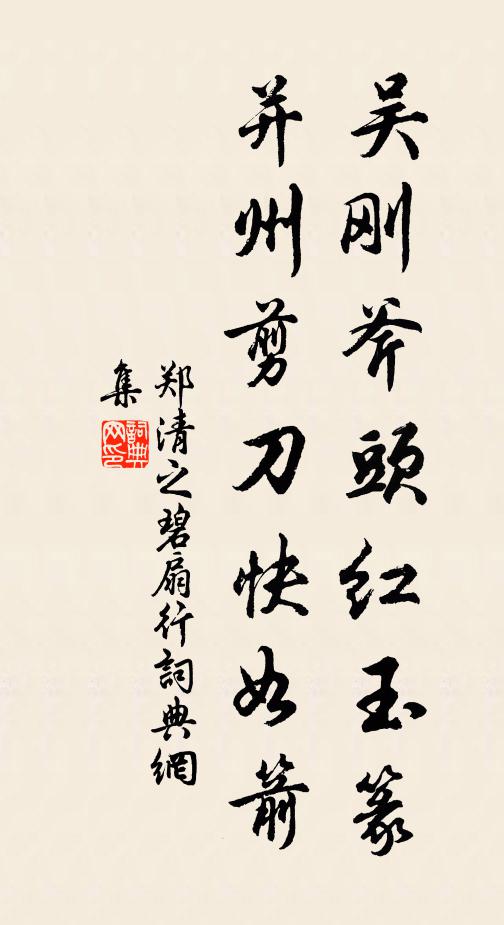 吴刚斧頭红玉篆
并州剪刀快如箭
郑清之碧扇行詞典網
集
詞典网印